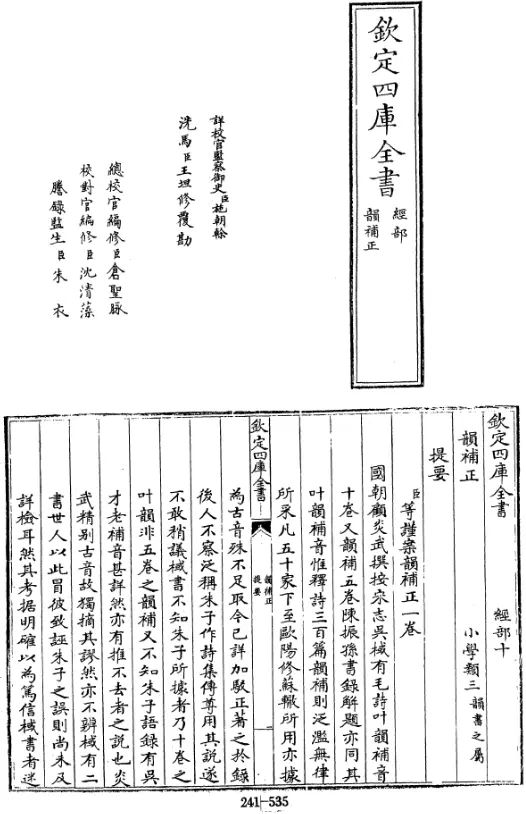 欽定四庫全書
經部
韻補正
詳校官監察御史臣施朝幹
洗馬臣王坦修覆勘
總校官編修臣倉聖脈
校對官編修臣沈清藻
謄錄監生臣朱衣
欽定四庫全書 經部十
韻補正 小學類三韻書之屬
提要
臣等謹案韻補正一卷
國朝顧炎武撰按宋志吳棫有毛詩叶韻補音
十卷又韻補五卷陳振孫書錄解題亦同其
叶韻補音惟釋詩三百篇韻補則泛濫無律
所采凡五十家下至歐陽修蘇轍所用亦據
欽定四庫全書
韻補正
提要
一
為古音殊不足取今已詳加駁正著之於錄
後人不察泛稱朱子作詩集傳專用其說遂
不敢稍議棫書不知朱子所據者乃十卷之
叶韻非五卷之韻補又不知朱子語錄有吳
才老補音甚詳然亦有推不去者之說也炎
武精別古音故獨摘其謬然亦不辨棫有二
書世人以此冒彼致誣朱子之誤則尚未及
詳檢耳然其考据明確以為篤信棫書者迷
241-535